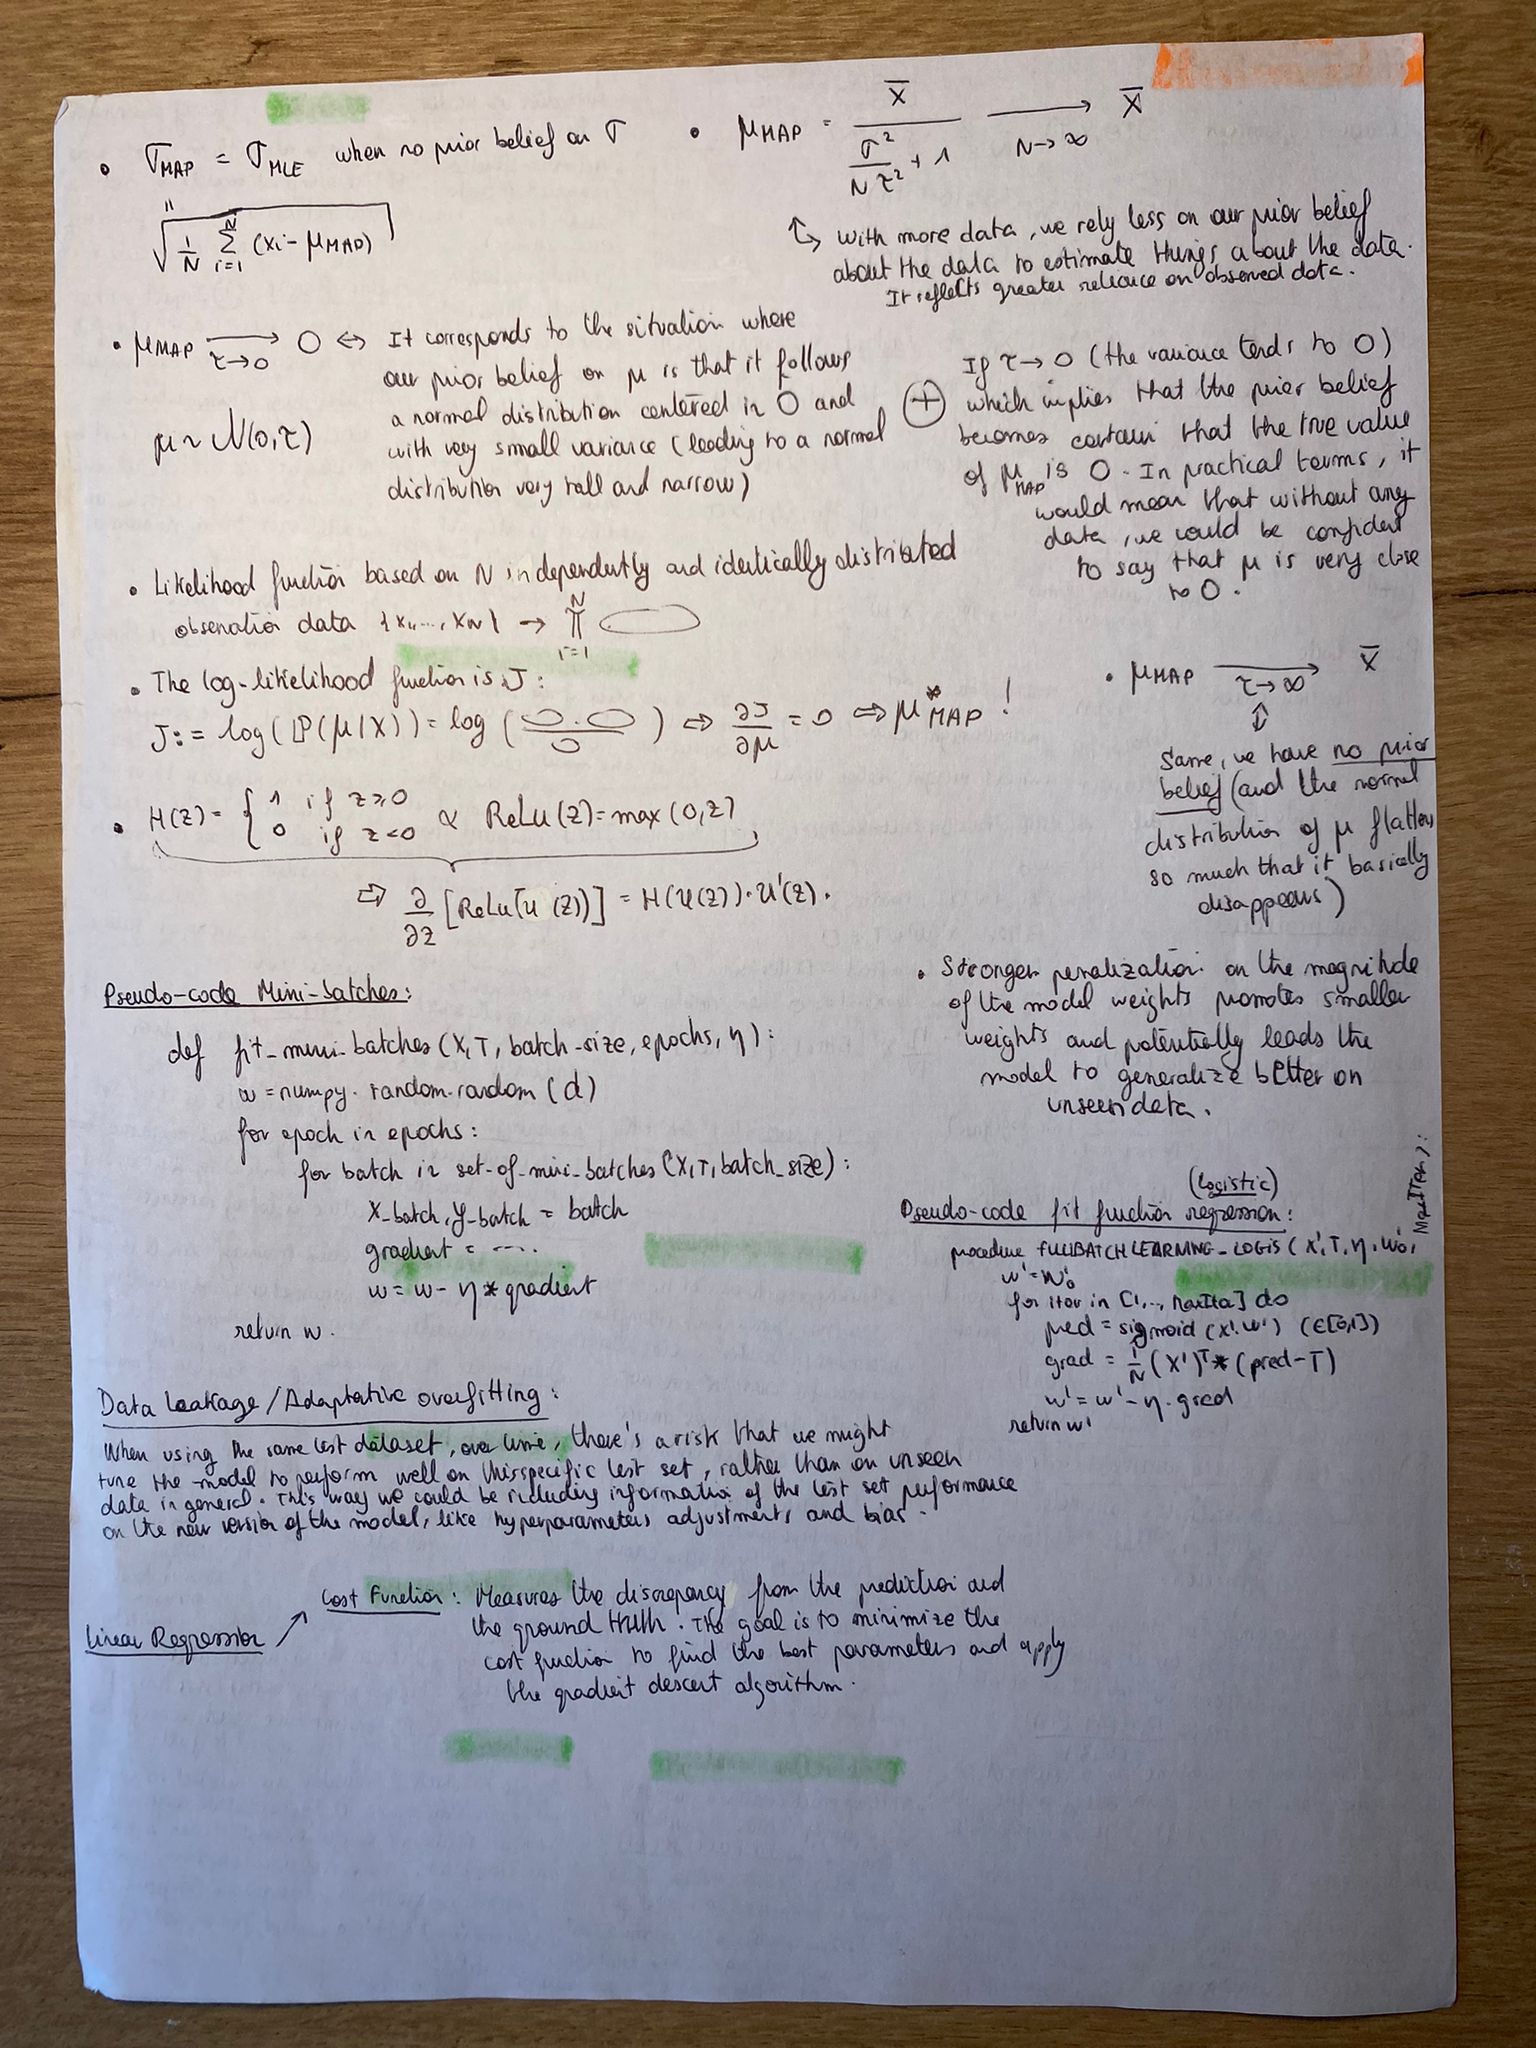 • σ_MAP = σ_MLE when no prior belief on σ
"
√(1/N Σ_{i=1}^{N} (xi - μ_MAP))
• μ_MAP = X̄ / (σ²/(Nτ²) + 1) ⟶_{N→∞} X̄
↳ With more data, we rely less on our prior belief
about the data to estimate things about the data.
It reflects greater reliance on observed data.
• μ_MAP ⟶_{τ→0} 0 ⇔ It corresponds to the situation where
our prior belief on μ is that it follows
a normal distribution centered in 0 and
with very small variance (leading to a normal
distribution very tall and narrow)
μ ~ N(0,τ)
⊕ If τ→0 (the variance tends to 0)
which implies that the prior belief
becomes certain that the true value
of μ_MAP is 0. In practical terms, it
would mean that without any
data, we could be confident
to say that μ is very close
to 0.
• Likelihood function based on N independently and identically distributed
observation data {x1,..., xN} → Π_{i=1}^{N}
• The log-likelihood function is J:
J := log(P(μ|X)) = log( ) ⇔ ∂J/∂μ = 0 ⇔ μ*_MAP !
• μ_MAP ⟶_{τ→∞} X̄
⇕
Same, we have no prior
belief (and the normal
distribution of μ flattens
so much that it basically
disappears)
• H(z) = { 1 if z≥0
0 if z<0 ∝ ReLu(z) = max(0,z)
⇨ ∂/∂z [ReLu(u(z))] = H(u(z)).u'(z).
• Stronger penalization on the magnitude
of the model weights promotes smaller
weights and potentially leads the
model to generalize better on
unseen data.
Pseudo-code Mini-batches:
def fit_mini_batches(X,T, batch-size, epochs, η):
w = numpy.random.random(d)
for epoch in epochs:
for batch in set-of-mini-batches(X,T,batch_size):
X_batch, y_batch = batch
gradient = ....
w = w - η * gradient
return w.
(logistic)
Pseudo-code fit function regression:
procedure FULLBATCHLEARNING_LOGIS (X', T, η, w'0, MaxIter):
w' = w'0
for iter in [1,.., MaxIter] do
pred = sigmoid (X'.w') (∈[0,1])
grad = 1/N (X')^T * (pred-T)
w' = w' - η. grad
return w'
Data Leakage/Adaptative overfitting:
When using the same test dataset, over time, there's a risk that we might
tune the model to perform well on this specific test set, rather than on unseen
data in general. This way we could be including information of the test set performance
on the new version of the model, like hyperparameters adjustments and bias.
Linear Regression ↗ Cost Function: Measures the discrepancy from the prediction and
the ground truth. The goal is to minimize the
cost function to find the best parameters and apply
the gradient descent algorithm.